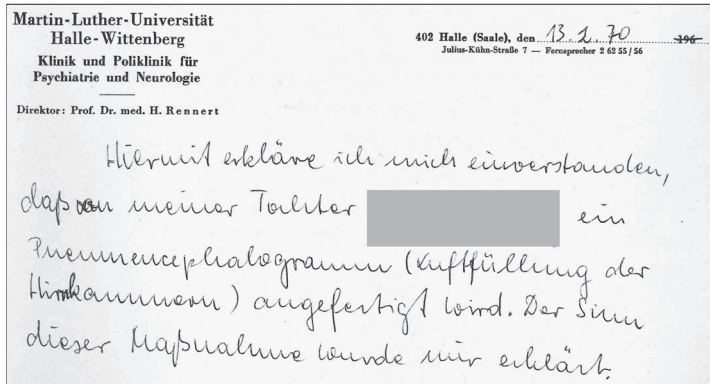 Martin-Luther-Universität
Halle-Wittenberg
Klinik und Poliklinik für
Psychiatrie und Neurologie
Direktor: Prof. Dr. med. H. Rennert
402 Halle (Saale), den 13. 2. 70 196
Julius-Kühn-Straße 7 — Fernsprecher 2 62 55/56
Hiermit erkläre ich mich einverstanden,
daß von meiner Tochter ein
Pneumencephalogramm (Luftfüllung der
Hirnkammern) angefertigt wird. Der Sinn
dieser Maßnahme wurde mir erklärt.